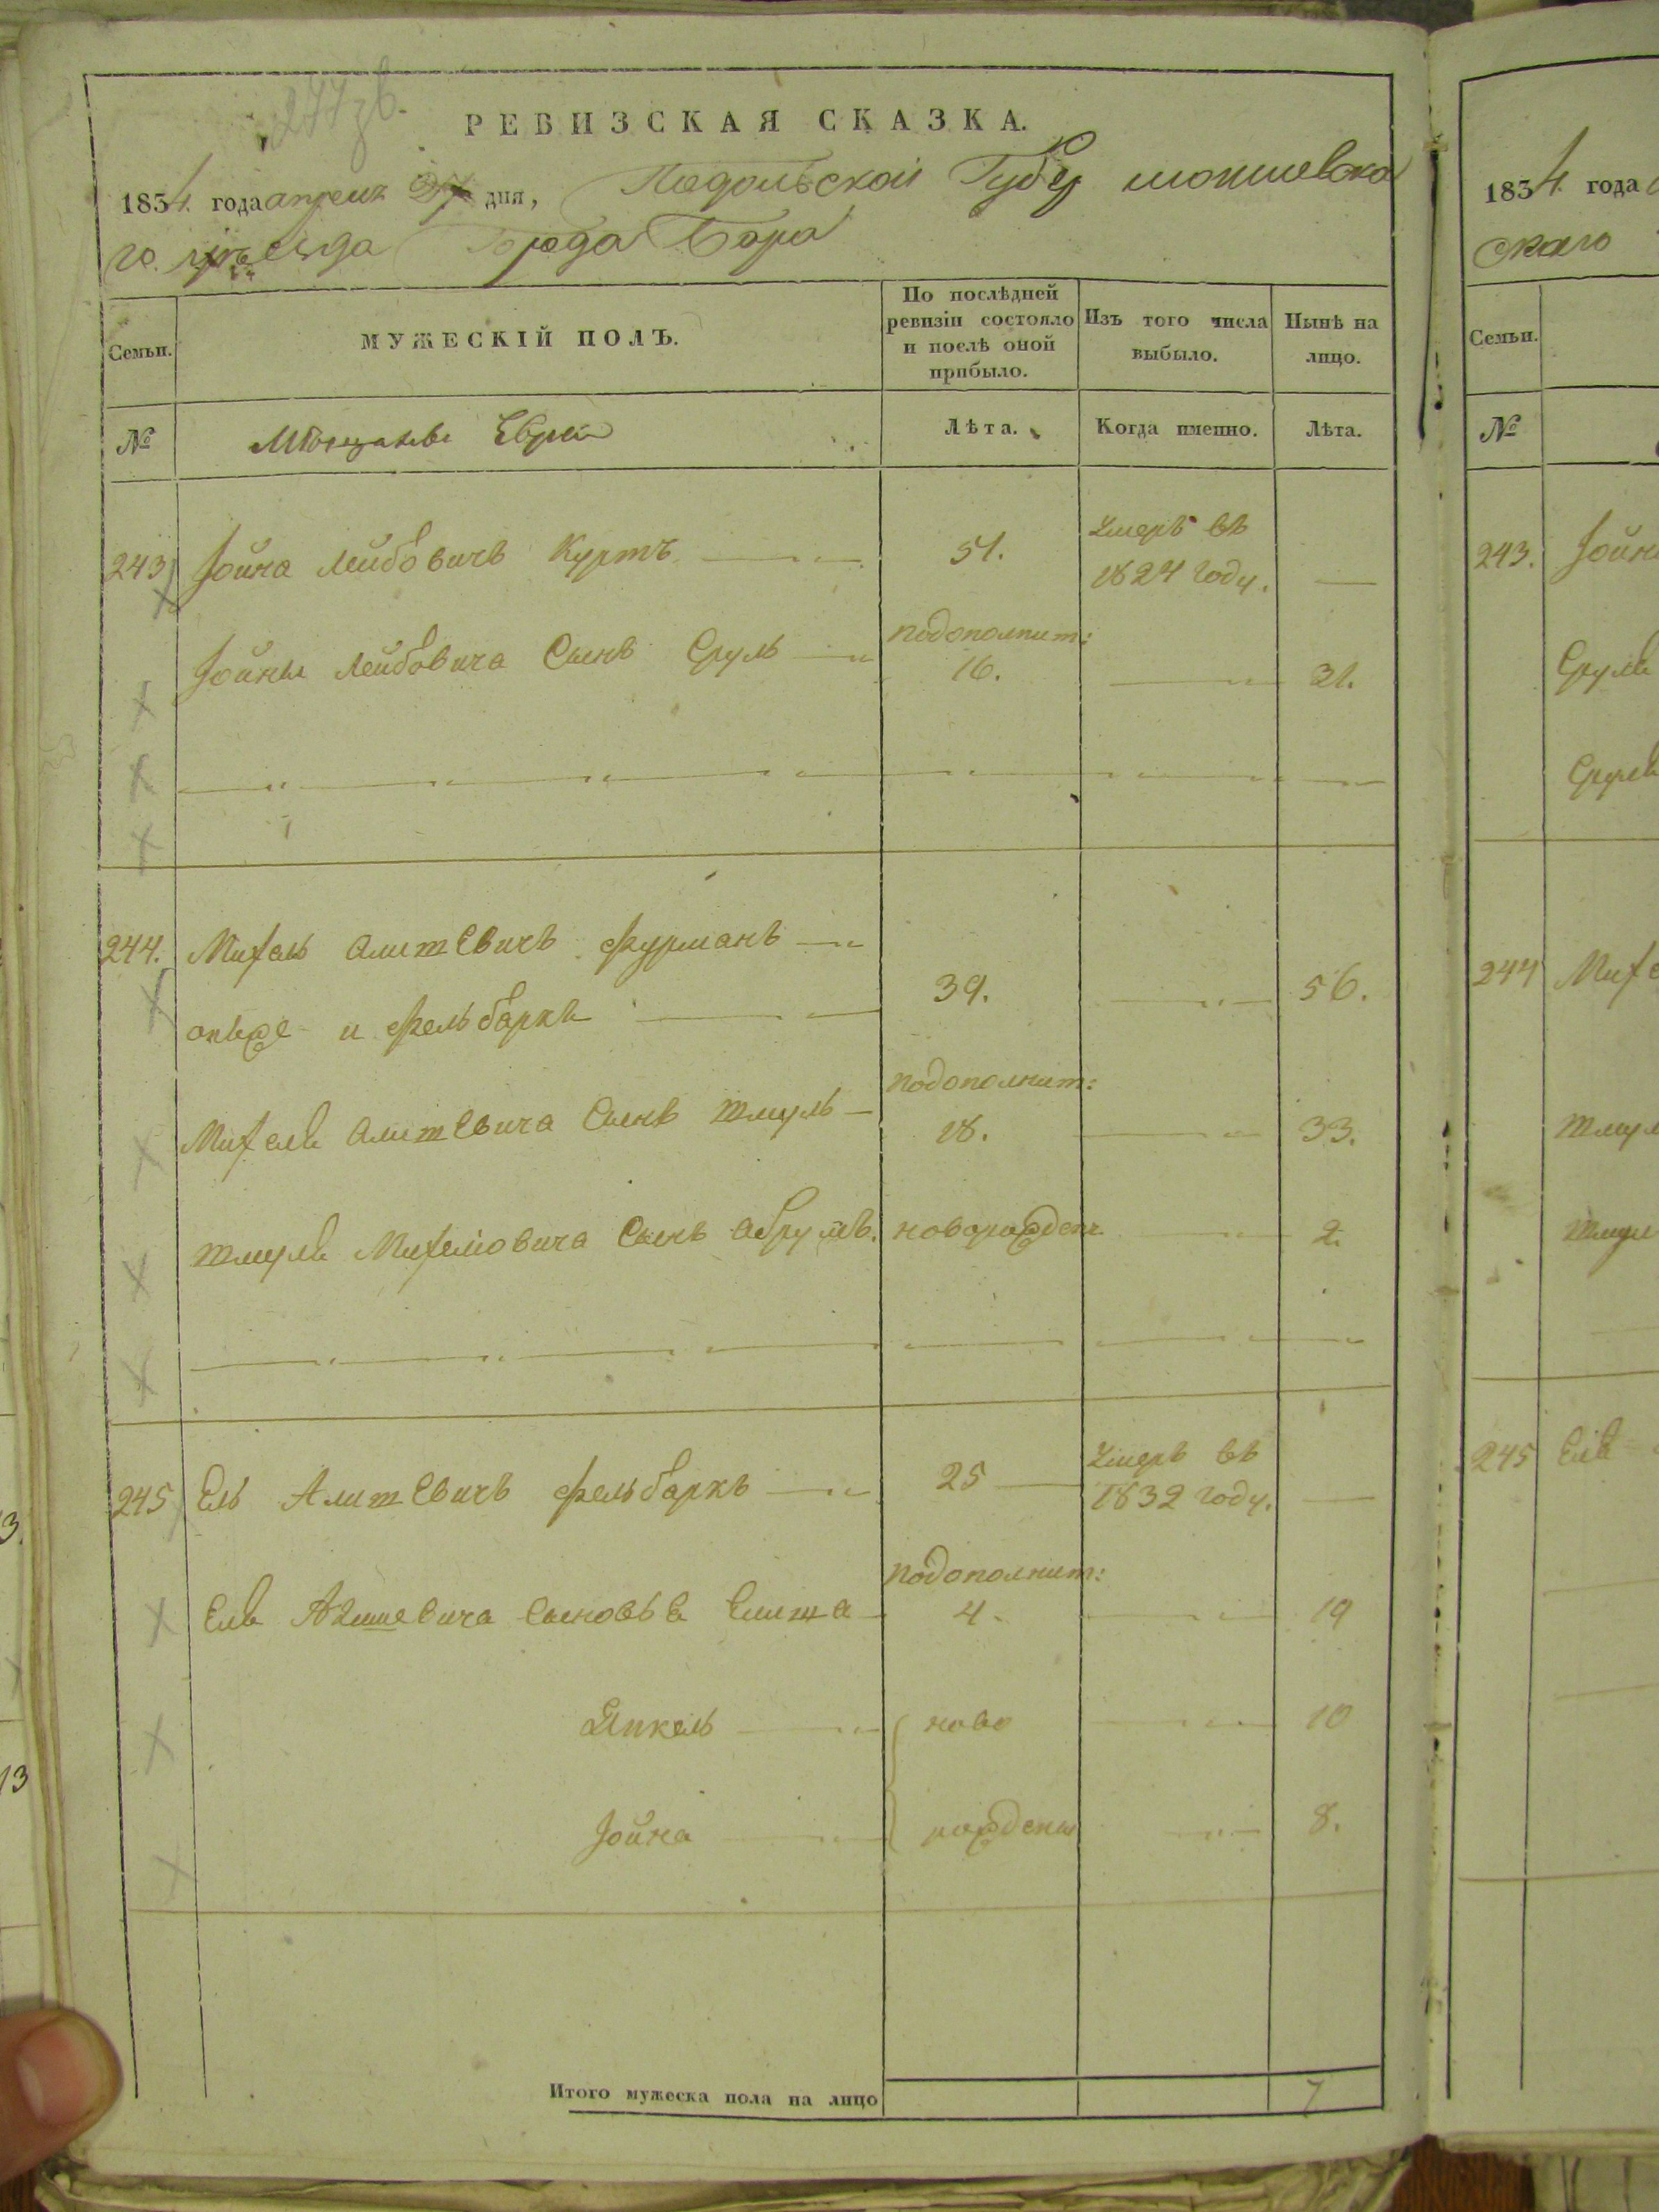 277 зв.
РЕВИЗСКАЯ СКАЗКА.
1834. года апреля 27 дня, Подольской Губер могилевска
го уезда Города Бара
Семьи. МУЖЕСКІЙ ПОЛЪ. По послѣдней ревизіи состояло и послѣ оной прибыло. Изъ того числа выбыло. Нынѣ на лицо.
№ Мѣщане Евреи Лѣта. Когда именно. Лѣта.
243 Іойна Лейбовичъ Куртъ 51. Умеръ въ 1824 году. —
Іойны Лейбовича Сынъ Сруль подополнит: 16. — 31.
244. Михель Алтеевичъ Фурманъ
онже и Фельбаркъ 39. — 56.
Михеля Сынъ Шмуль подополнит: 18. — 33.
Шмуля Михелiовича Сынъ Абрумъ. новорожден. — 2.
245 Ель Фельбаркъ 25 — Умеръ въ 1832 году. —
Еля Сыновья подополнит: 4. — 19
Янкель ново — 10
Іойна рождены — 8.
Итого мужеска пола на лицо 7
1834. года
скаго
Семьи.
№
243. Іойн
Сруля
Сруля
244 Михе
Шмул
Шмул
245 Еля
3.
13